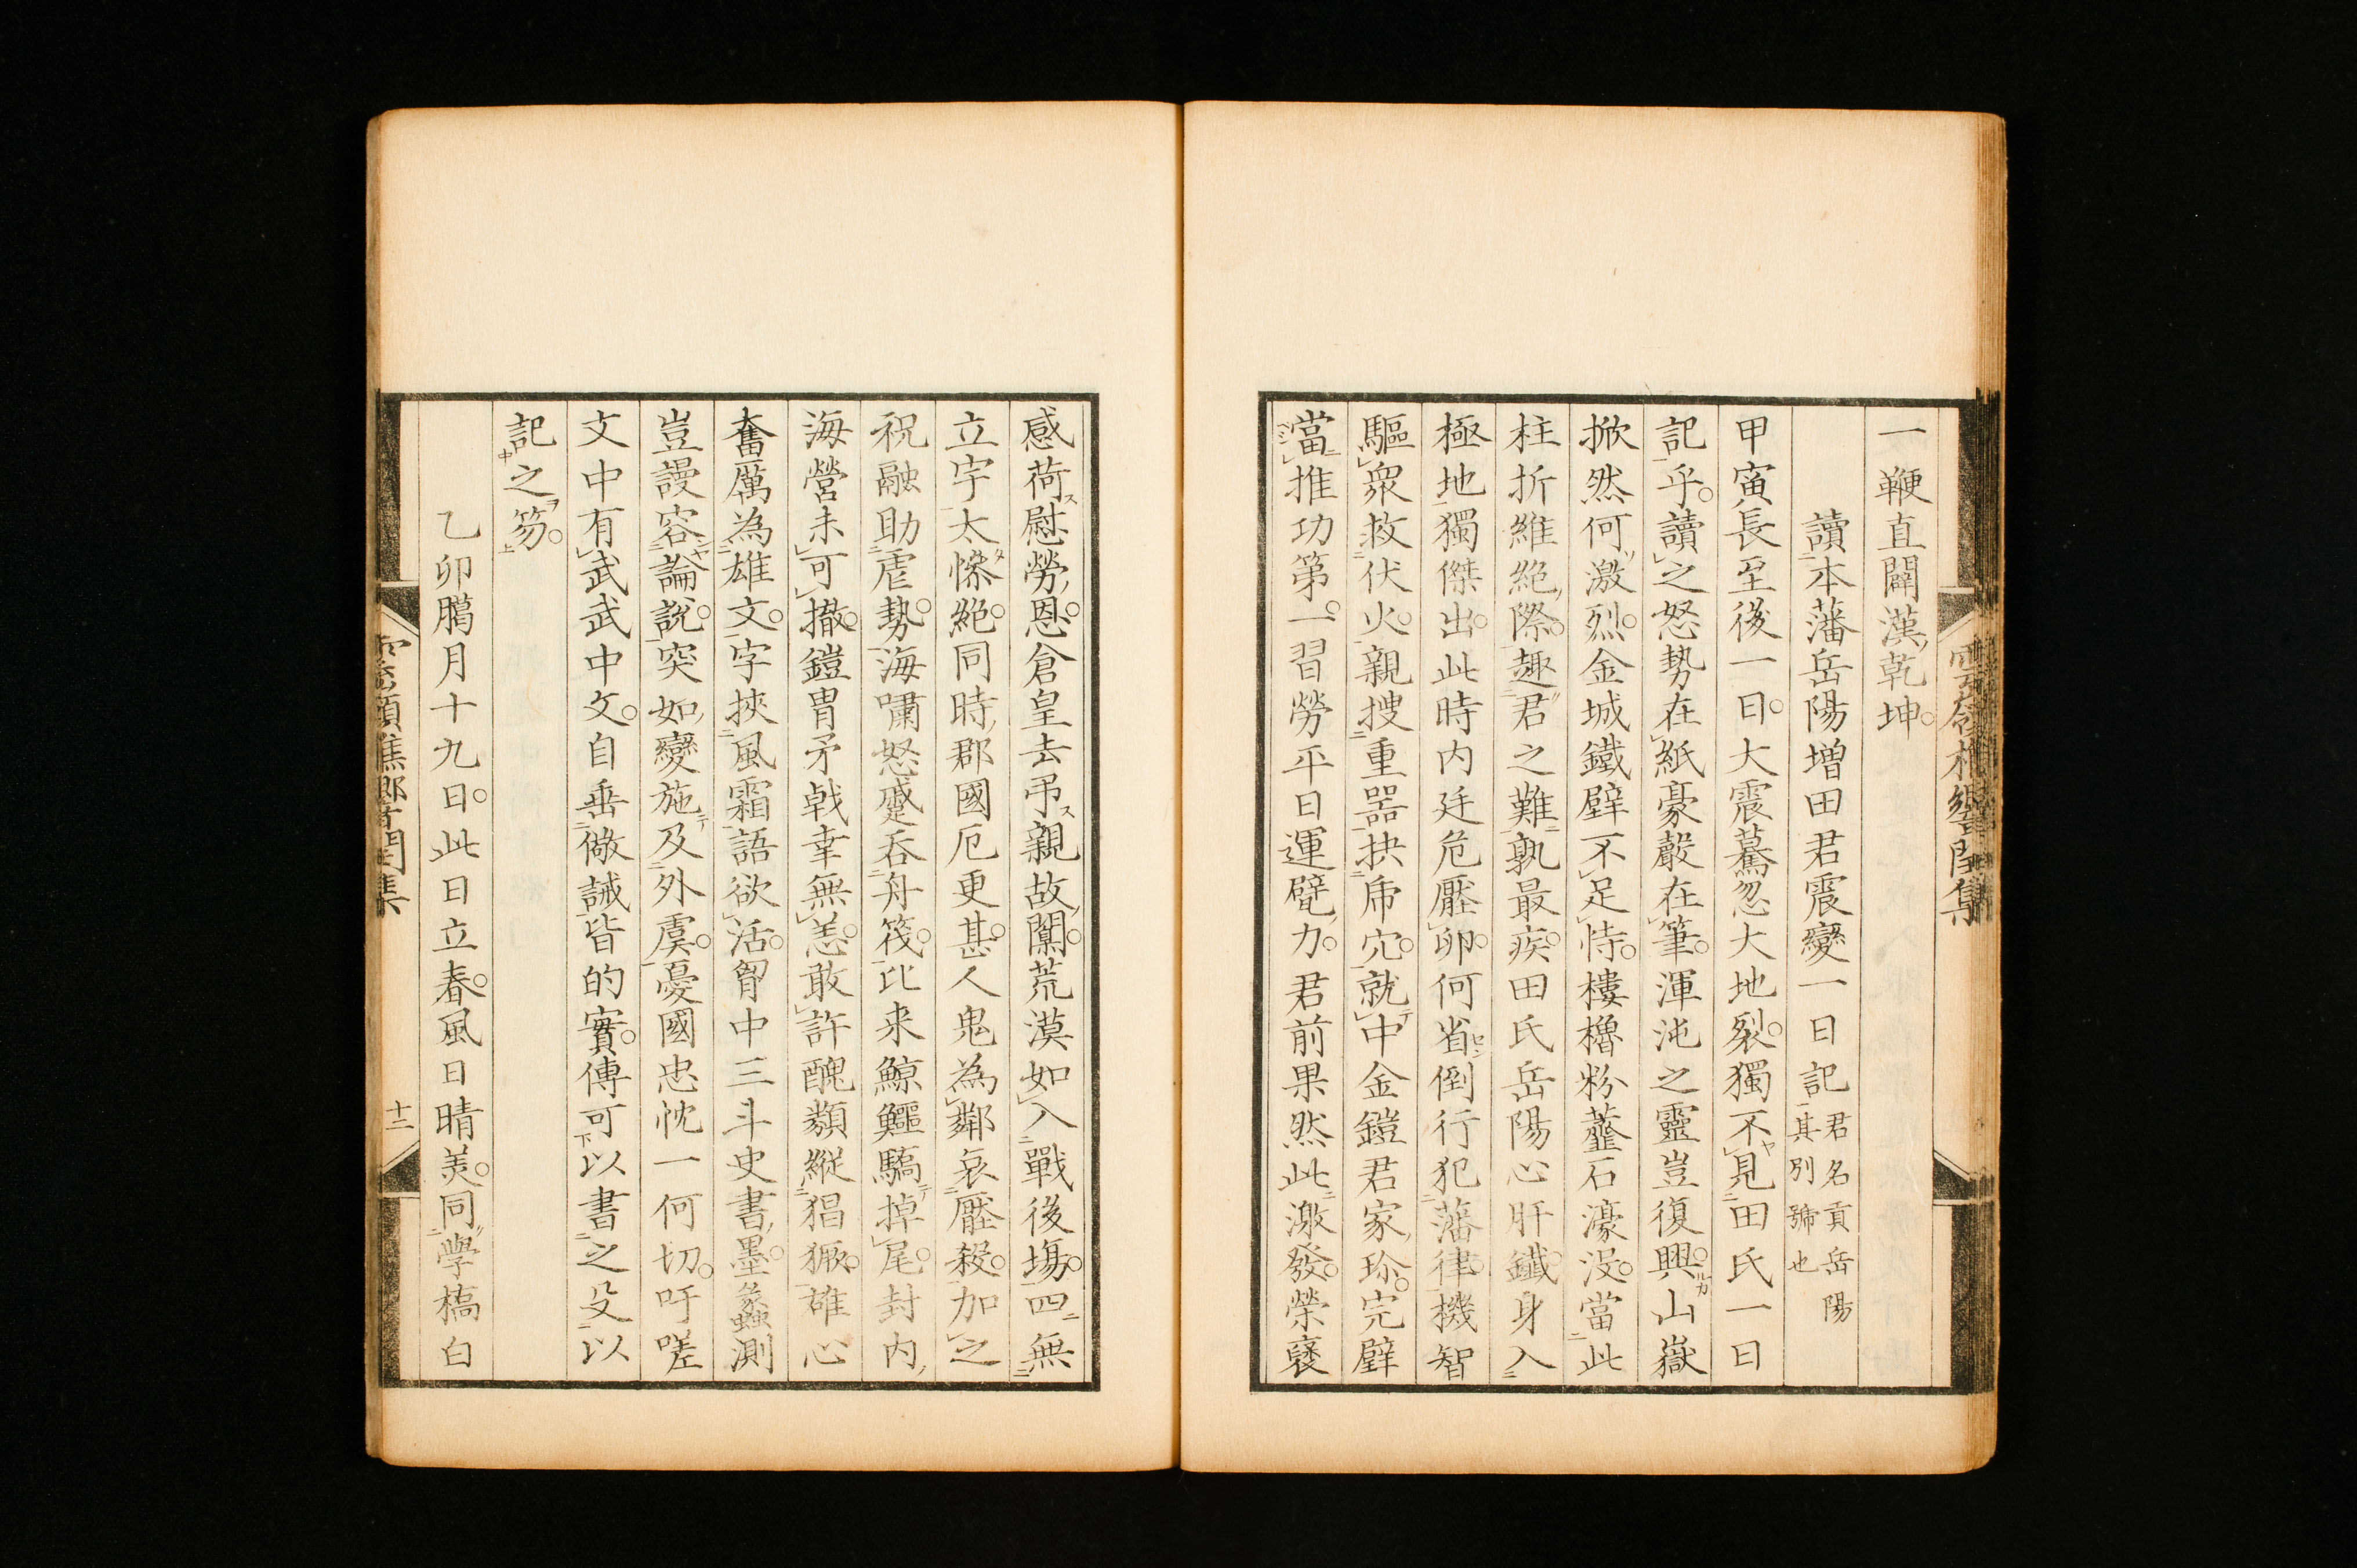 一鞭直闢漢乾坤。
讀本藩岳陽増田君震變一日記 君名貢岳陽
其別號也
甲寅長至後一日。大震驀忽大地裂。獨不見田氏一日
記乎。讀之怒勢在紙豪嚴在筆。渾沌之靈豈復興。山嶽
掀然何激烈。金城鐵壁不足恃。樓櫓粉虀石濠沒。當此
柱折維絶際。趣君之難孰最疾。田氏岳陽心肝鐵。身入
極地獨傑出。此時内廷危壓卯。何省倒行犯藩律。機智
驅衆救伏火。親捜重器抉乕穴。就中金鎧君家珍。完璧
當推功第一。習勞平日運甓力。君前果然此激發。榮襃
感荷慰勞恩。倉皇去弔親故闃。荒漠如入戰後塲。四無
立宇太慘絶。同時郡國厄更甚。人鬼為鄰哀壓殺。加之
祝融助虐勢。海嘯怒蹙呑舟筏。比来鯨鱷驕掉尾。封内
海營未可撤。鎧冑矛戟幸無恙。敢許醜纇縱猖獗。雄心
奮厲為雄文。字挾風霜語欲活。胷中三斗史書墨。蠡測
豈謾容論説。突如變施及外虞。憂國忠忱一何切。吁嗟
文中有武武中文。自垂儆誡皆的實。傳可以書之殳以
記之笏。
乙卯臈月十九日。此日立春。風日晴美。同學橋白
雪嶺樵響閒集
十二